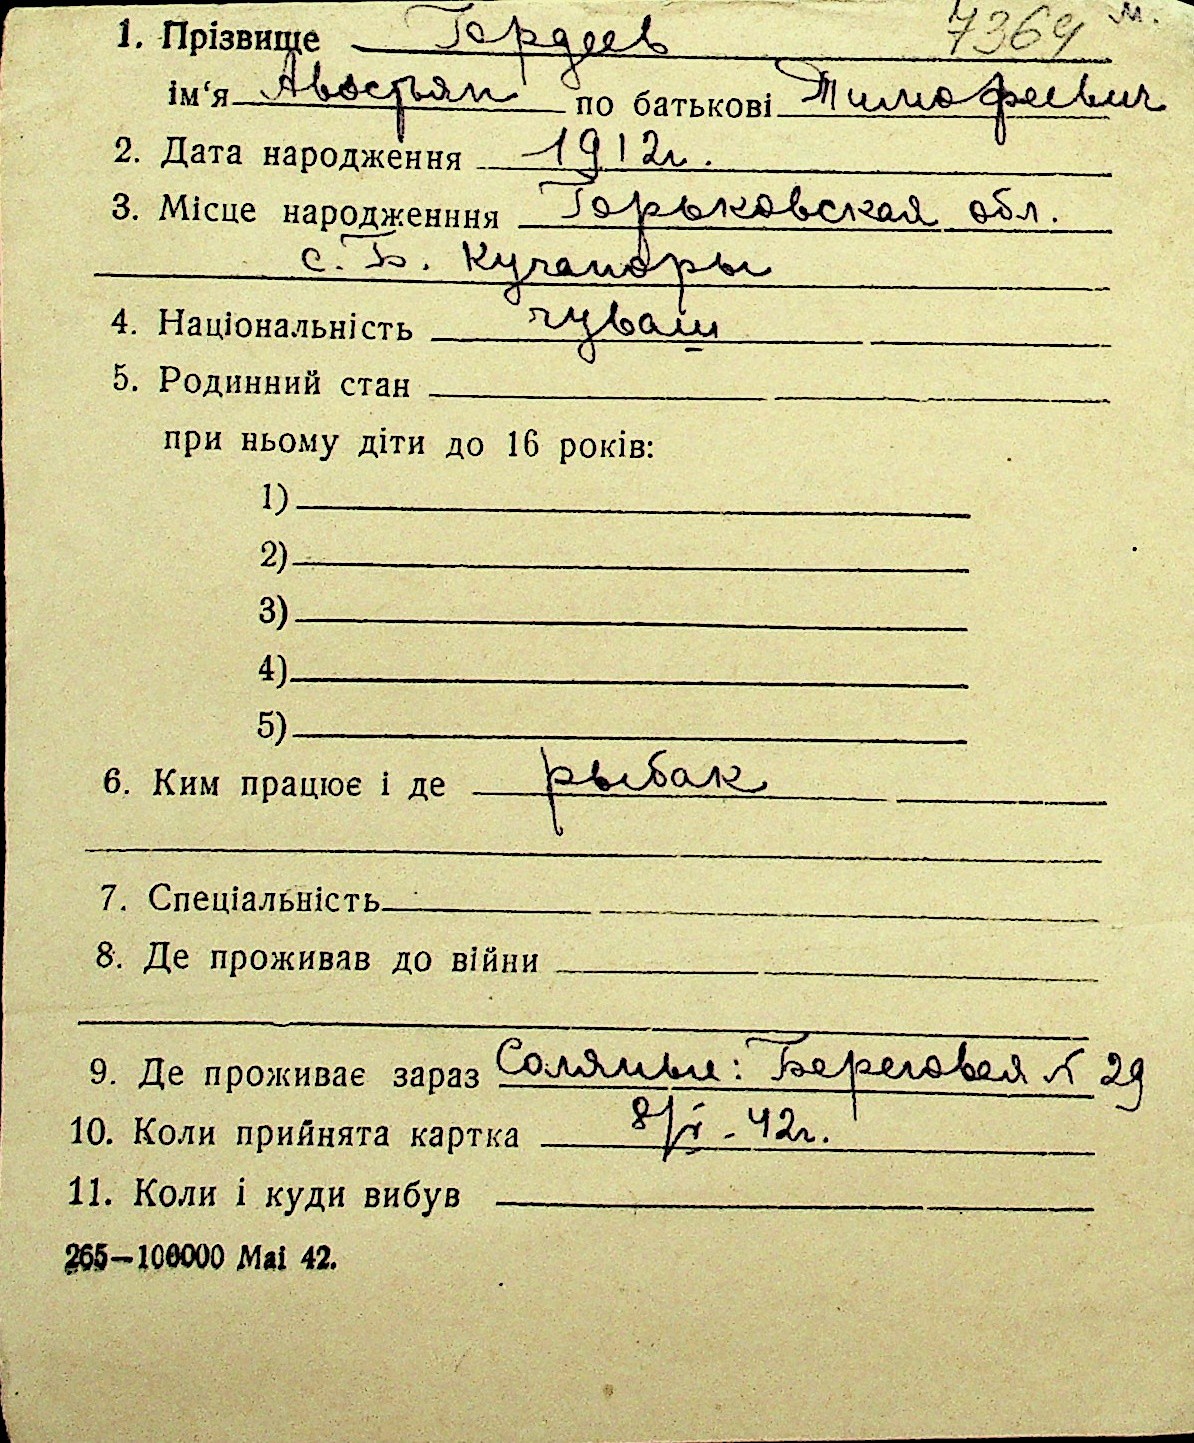 1. Прізвище Гордеев 7369 м.
ім‘я Авостьян по батькові Тимофеевич
2. Дата народження 1912г.
3. Місце народженння Горьковская обл.
с. Б. Кучаморы
4. Національність чуваш
5. Родинний стан
при ньому діти до 16 років:
1)
2)
3)
4)
5)
6. Ким працює і де рыбак
7. Спеціальність
8. Де проживав до війни
9. Де проживає зараз Соляные: Береговая № 29
10. Коли прийнята картка - 42г.
11. Коли і куди вибув
265—100000 Mai 42.